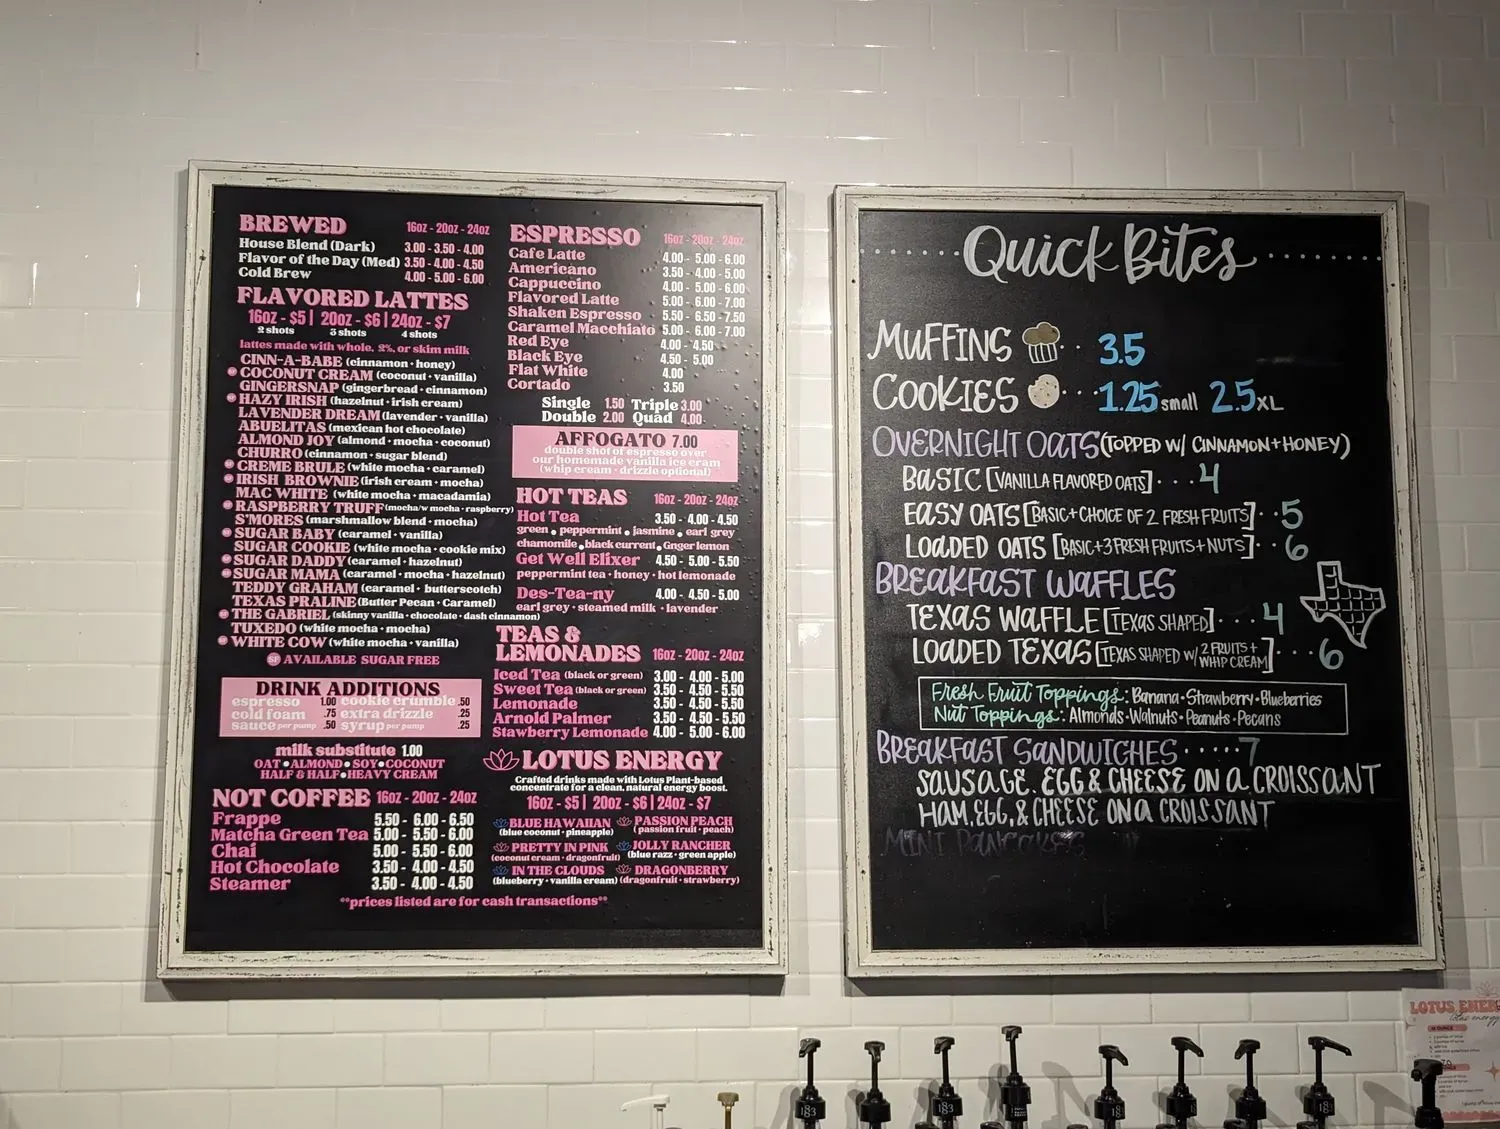 BREWED 16oz - 20oz - 24oz
House Blend (Dark) 3.00 - 3.50 - 4.00
Flavor of the Day (Med) 3.50 - 4.00 - 4.50
Cold Brew 4.00 - 5.00 - 6.00
FLAVORED LATTES
16oz - $5 | 20oz - $6 | 24oz - $7
2 shots 3 shots 4 shots
lattes made with whole, 2%, or skim milk
CINN-A-BABE (cinnamon • honey)
COCONUT CREAM (coconut • vanilla)
GINGERSNAP (gingerbread • cinnamon)
HAZY IRISH (hazelnut • irish cream)
LAVENDER DREAM (lavender • vanilla)
ABUELITAS (mexican hot chocolate)
ALMOND JOY (almond • mocha • coconut)
CHURRO (cinnamon • sugar blend)
CREME BRULE (white mocha • caramel)
IRISH BROWNIE (irish cream • mocha)
MAC WHITE (white mocha • macadamia)
RASPBERRY TRUFF (mocha/w mocha • raspberry)
S'MORES (marshmallow blend • mocha)
SUGAR BABY (caramel • vanilla)
SUGAR COOKIE (white mocha • cookie mix)
SUGAR DADDY (caramel • hazelnut)
SUGAR MAMA (caramel • mocha • hazelnut)
TEDDY GRAHAM (caramel • butterscotch)
TEXAS PRALINE (Butter Pecan • Caramel)
THE GABRIEL (skinny vanilla • chocolate • dash cinnamon)
TUXEDO (white mocha • mocha)
WHITE COW (white mocha • vanilla)
SF AVAILABLE SUGAR FREE
DRINK ADDITIONS
espresso 1.00 cookie crumble .50
cold foam .75 extra drizzle .25
sauce per pump .50 syrup per pump .25
milk substitute 1.00
OAT • ALMOND • SOY • COCONUT
HALF & HALF • HEAVY CREAM
NOT COFFEE 16oz - 20oz - 24oz
Frappe 5.50 - 6.00 - 6.50
Matcha Green Tea 5.00 - 5.50 - 6.00
Chai 5.00 - 5.50 - 6.00
Hot Chocolate 3.50 - 4.00 - 4.50
Steamer 3.50 - 4.00 - 4.50
ESPRESSO 16oz - 20oz - 24oz
Cafe Latte 4.00 - 5.00 - 6.00
Americano 3.50 - 4.00 - 5.00
Cappuccino 4.00 - 5.00 - 6.00
Flavored Latte 5.00 - 6.00 - 7.00
Shaken Espresso 5.50 - 6.50 - 7.50
Caramel Macchiato 5.00 - 6.00 - 7.00
Red Eye 4.00 - 4.50
Black Eye 4.50 - 5.00
Flat White 4.00
Cortado 3.50
Single 1.50 Triple 3.00
Double 2.00 Quad 4.00
AFFOGATO 7.00
double shot of espresso over
our homemade vanilla ice cram
(whip cream • drizzle optional)
HOT TEAS 16oz - 20oz - 24oz
Hot Tea 3.50 - 4.00 - 4.50
green • peppermint • jasmine • earl grey
chamomile • black current • Gnger lemon
Get Well Elixer 4.50 - 5.00 - 5.50
peppermint tea • honey • hot lemonade
Des-Tea-ny 4.00 - 4.50 - 5.00
earl grey • steamed milk • lavender
TEAS &
LEMONADES 16oz - 20oz - 24oz
Iced Tea (black or green) 3.00 - 4.00 - 5.00
Sweet Tea (black or green) 3.50 - 4.50 - 5.50
Lemonade 3.50 - 4.50 - 5.50
Arnold Palmer 3.50 - 4.50 - 5.50
Stawberry Lemonade 4.00 - 5.00 - 6.00
LOTUS ENERGY
Crafted drinks made with Lotus Plant-based
concentrate for a clean, natural energy boost.
16oz - $5 | 20oz - $6 | 24oz - $7
BLUE HAWAIIAN PASSION PEACH
(blue coconut • pineapple) (passion fruit • peach)
PRETTY IN PINK JOLLY RANCHER
(coconut cream • dragonfruit) (blue razz • green apple)
IN THE CLOUDS DRAGONBERRY
(blueberry • vanilla cream) (dragonfruit • strawberry)
**prices listed are for cash transactions**
Quick Bites
MUFFINS 3.5
COOKIES 1.25 small 2.5 XL
OVERNIGHT OATS (TOPPED W/ CINNAMON + HONEY)
BASIC [VANILLA FLAVORED OATS] ... 4
EASY OATS [BASIC + CHOICE OF 2 FRESH FRUITS] .. 5
LOADED OATS [BASIC + 3 FRESH FRUITS + NUTS] .. 6
BREAKFAST WAFFLES
TEXAS WAFFLE [TEXAS SHAPED] ... 4
LOADED TEXAS [TEXAS SHAPED W/ 2 FRUITS + WHIP CREAM] ... 6
Fresh Fruit Toppings: Banana • Strawberry • Blueberries
Nut Toppings: Almonds • Walnuts • Peanuts • Pecans
BREAKFAST SANDWICHES ..... 7
SAUSAGE, EGG & CHEESE ON A CROISSANT
HAM, EGG, & CHEESE ON A CROISSANT
MINI PANCAKES
LOTUS ENERG
183
183
183